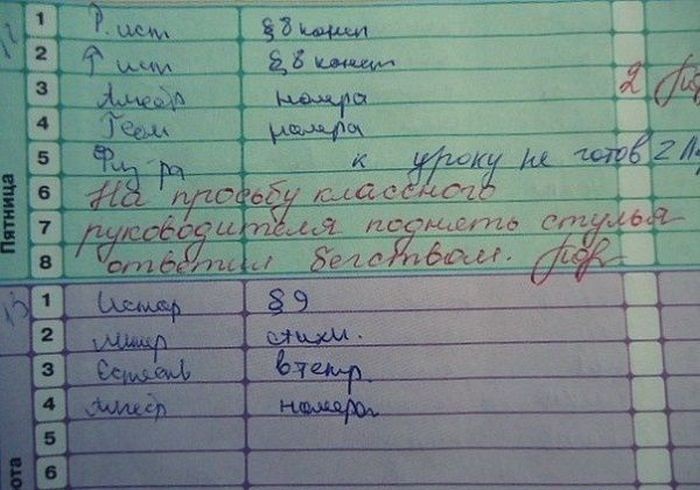 1 Р. ист § 8 консп
2 Р ист § 8 консп
3 Алгебр номера 2
4 Геом номера
Пятница
5 Физ ра к уроку не готов 2
6 На просьбу классного
7 руководителя поднять стулья
8 ответил бегством.
1 Истор § 9
2 Литер стихи.
3 Естеств в тетр.
4 Алгебр номера
5
6